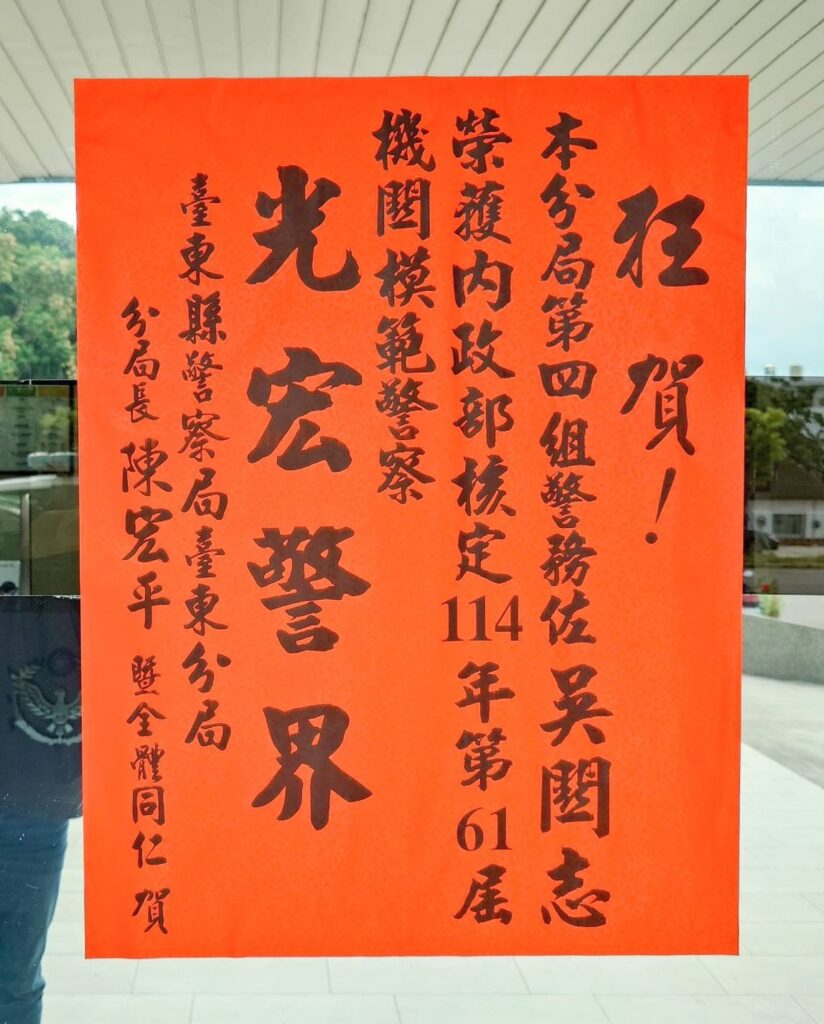 狂賀！
本分局第四組警務佐吳關志
榮獲內政部核定114年第61屆
機關模範警察
光宏警界
臺東縣警察局臺東分局
分局長陳宏平暨全體同仁賀